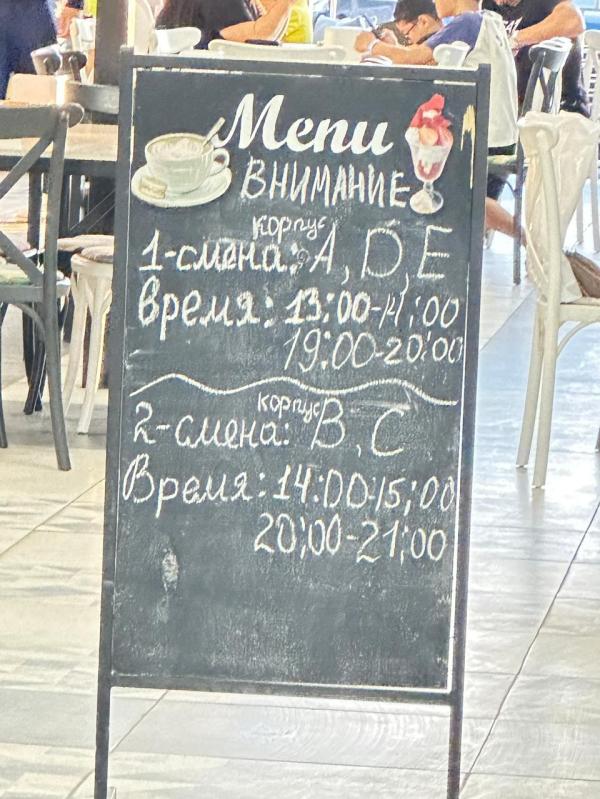 Menu
ВНИМАНИЕ
корпус
1-смена: A, D, E
Время: 13:00-14:00
19:00-20:00
корпус
2-смена: B, C
Время: 14:00-15:00
20:00-21:00